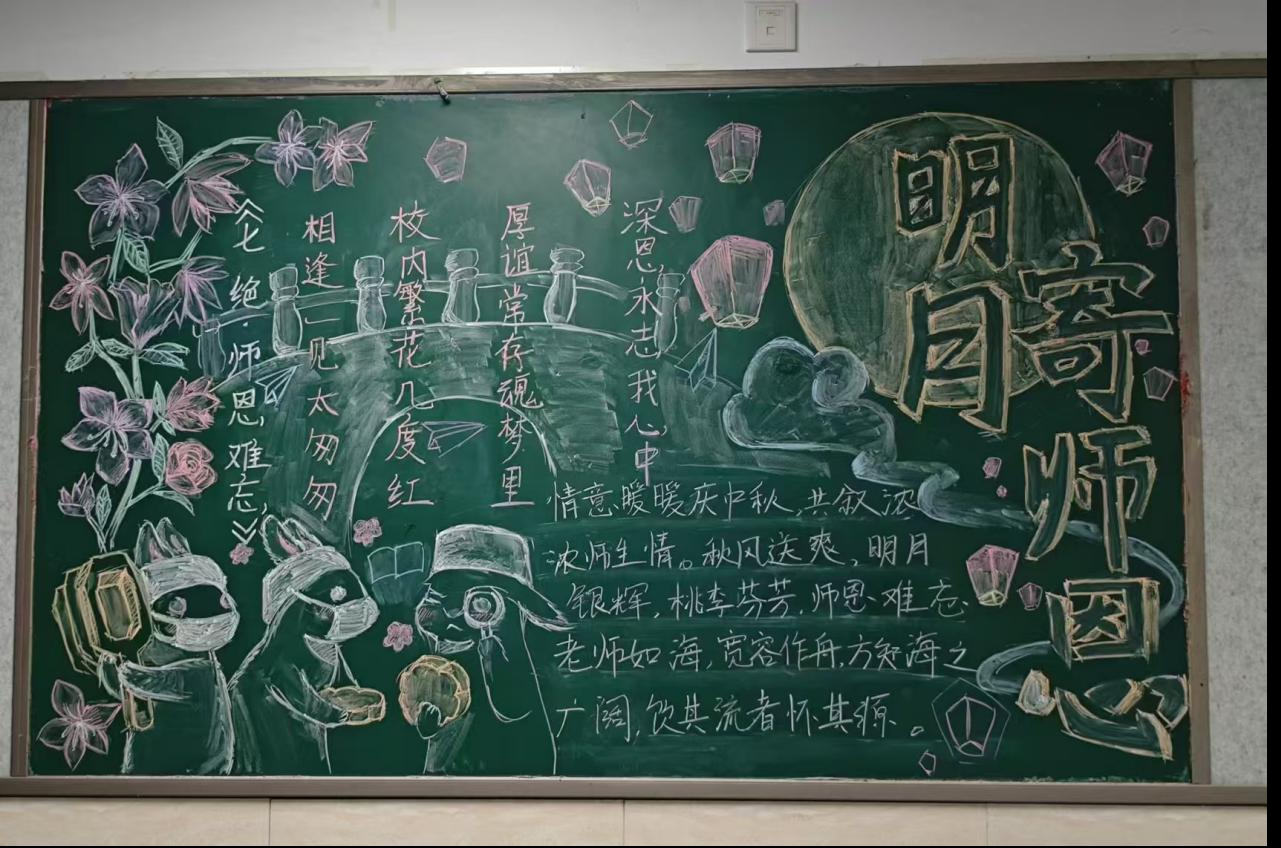 明月
寄师恩
《七绝·师恩难忘》
相逢一见太匆匆
校内繁花几度红
厚谊常存魂梦里
深恩永志我心中
情意暖暖庆中秋,共叙浓
浓师生情。秋风送爽、明月
银辉,桃李芬芳,师恩难忘
老师如海,宽容作舟,方知海之
广阔,饮其流者怀其源。